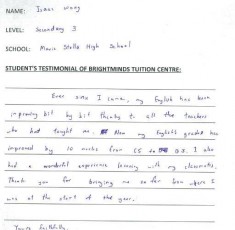 NAME: Isaac Wong
LEVEL: Secondary 3
SCHOOL: Maris Stella High School
STUDENT'S TESTIMONIAL OF BRIGHTMINDS TUITION CENTRE:
Ever since I came, my English has been
improving bit by bit thanks to all the teachers
who had taught me. Now my English grades has
improved by 10 marks from C5 to B3. I also
had a wonderful experience learning with my classmates.
Thank you for bringing me so far from where I
was at the start of the year.
Yours faithfully,